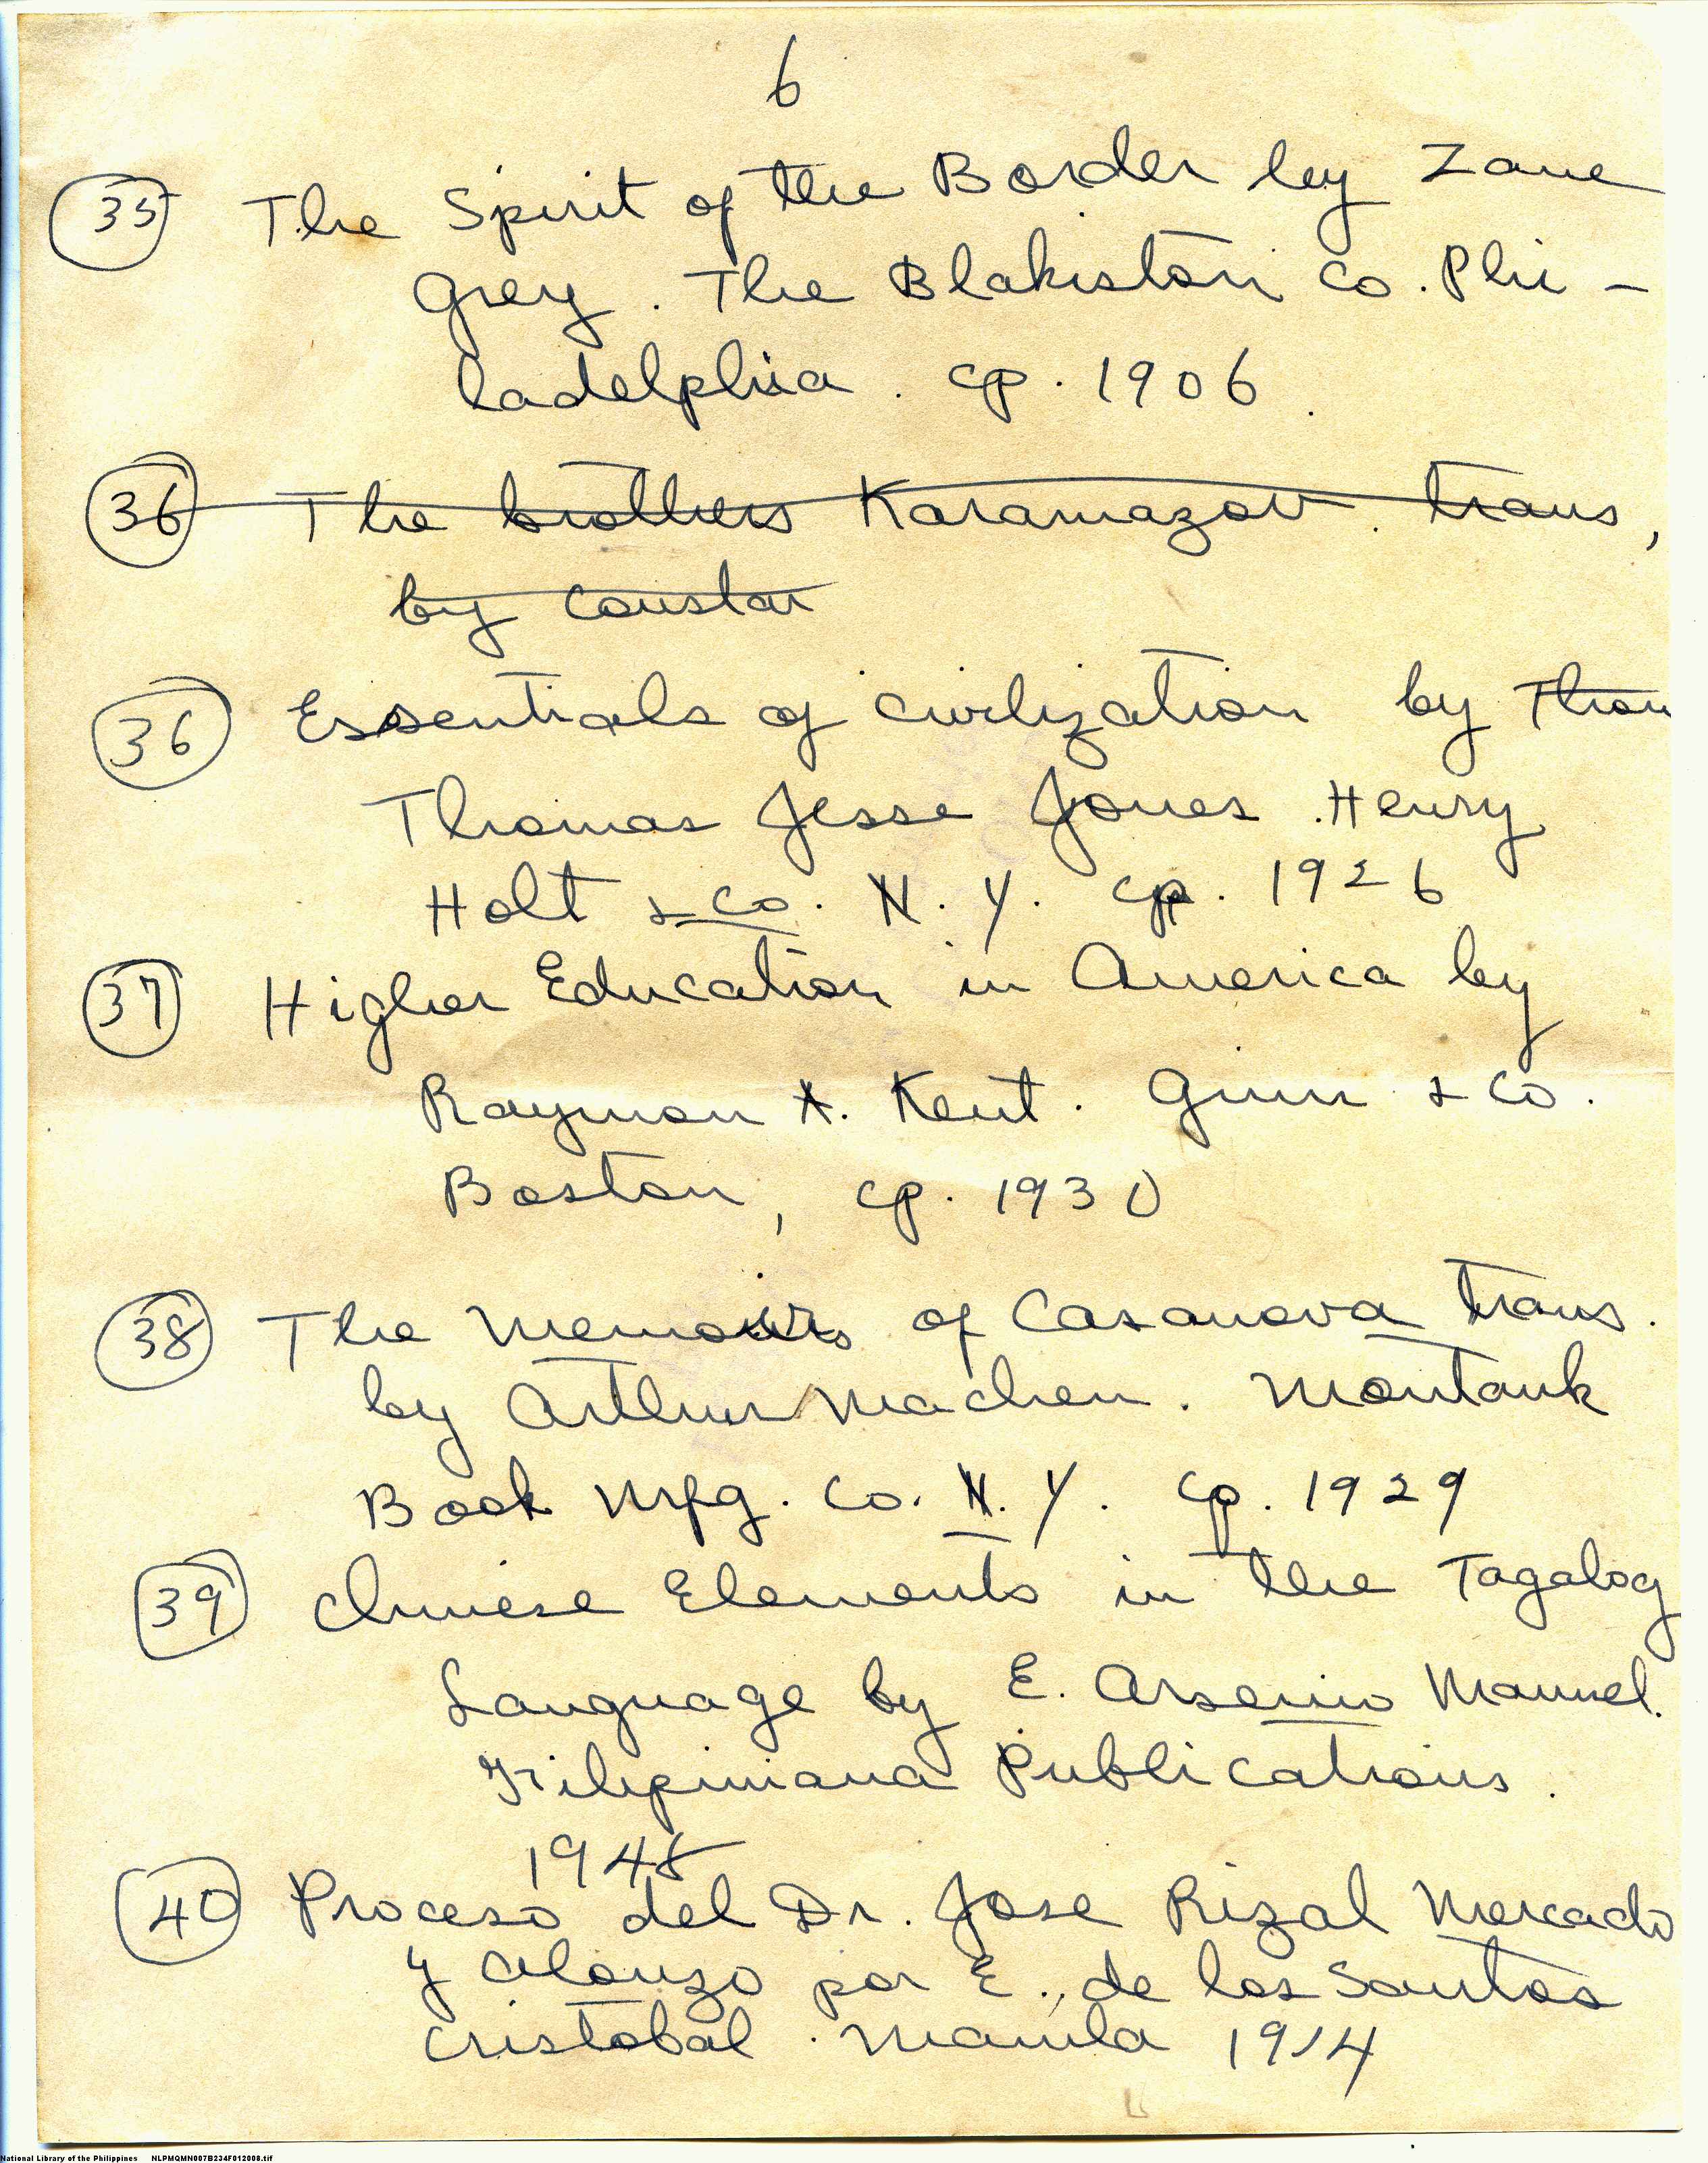 6
35 The Spirit of the Border by Zane
Grey. The Blakiston Co. Phi-
ladelphia. cp. 1906.
36 The brothers Karamazov. trans,
by Constan
36 Essentials of civilization by Thom
Thomas Jesse Jones. Henry
Holt & Co. N. Y. cp. 1926
37 Higher Education in America by
Raymon A. Kent. Ginn & Co.
Boston, cp. 1930
38 The Memoirs of Casanova trans.
by Arthur Machen. Montauk
Book Mfg. Co. N. Y. cp. 1929
39 Chinese Elements in the Tagalog
Language by E. Arsenio Manuel.
Filipiniana Publications.
1948
40 Proceso del Dr. Jose Rizal Mercado
y Alonzo por E. de los Santos
Cristobal. Manila 1914
National Library of the Philippines NLPMQMN007B234F012008.tif